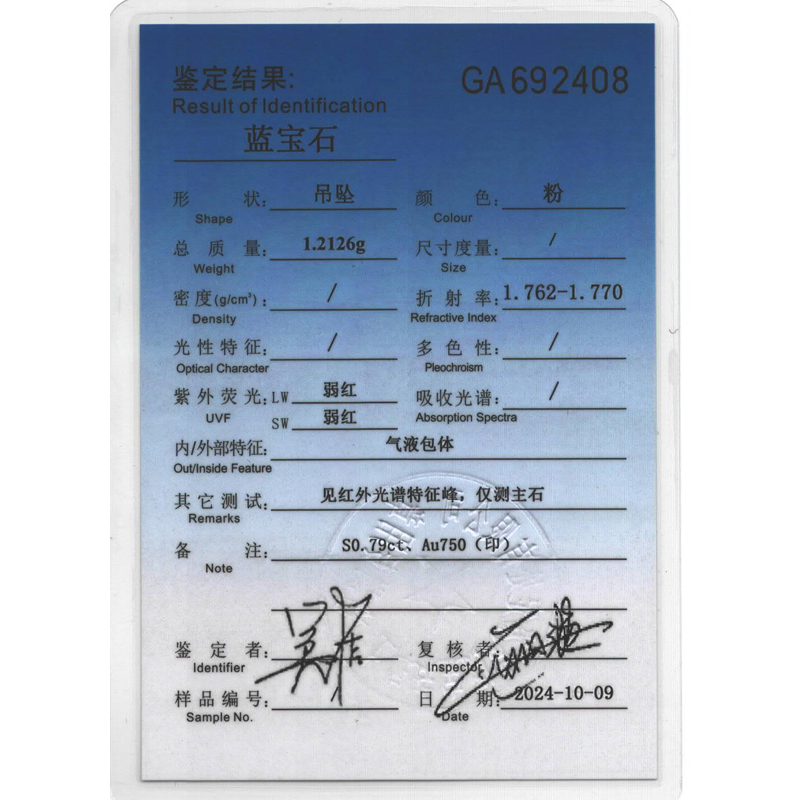 鉴定结果: GA692408
Result of Identification
蓝宝石
形 状: 吊坠 颜 色: 粉
Shape Colour
总 质 量: 1.2126g 尺寸度量: /
Weight Size
密 度(g/cm³): / 折 射 率: 1.762-1.770
Density Refractive Index
光性特征: / 多 色 性: /
Optical Character Pleochroism
紫外荧光: LW 弱红 吸收光谱: /
UVF SW 弱红 Absorption Spectra
内/外部特征: 气液包体
Out/Inside Feature
其它测试: 见红外光谱特征峰，仅测主石
Remarks
备 注: S0.79ct、Au750（印）
Note
鉴 定 者: 复 核 者:
Identifier Inspector
样品编号: 日 期: 2024-10-09
Sample No. Date